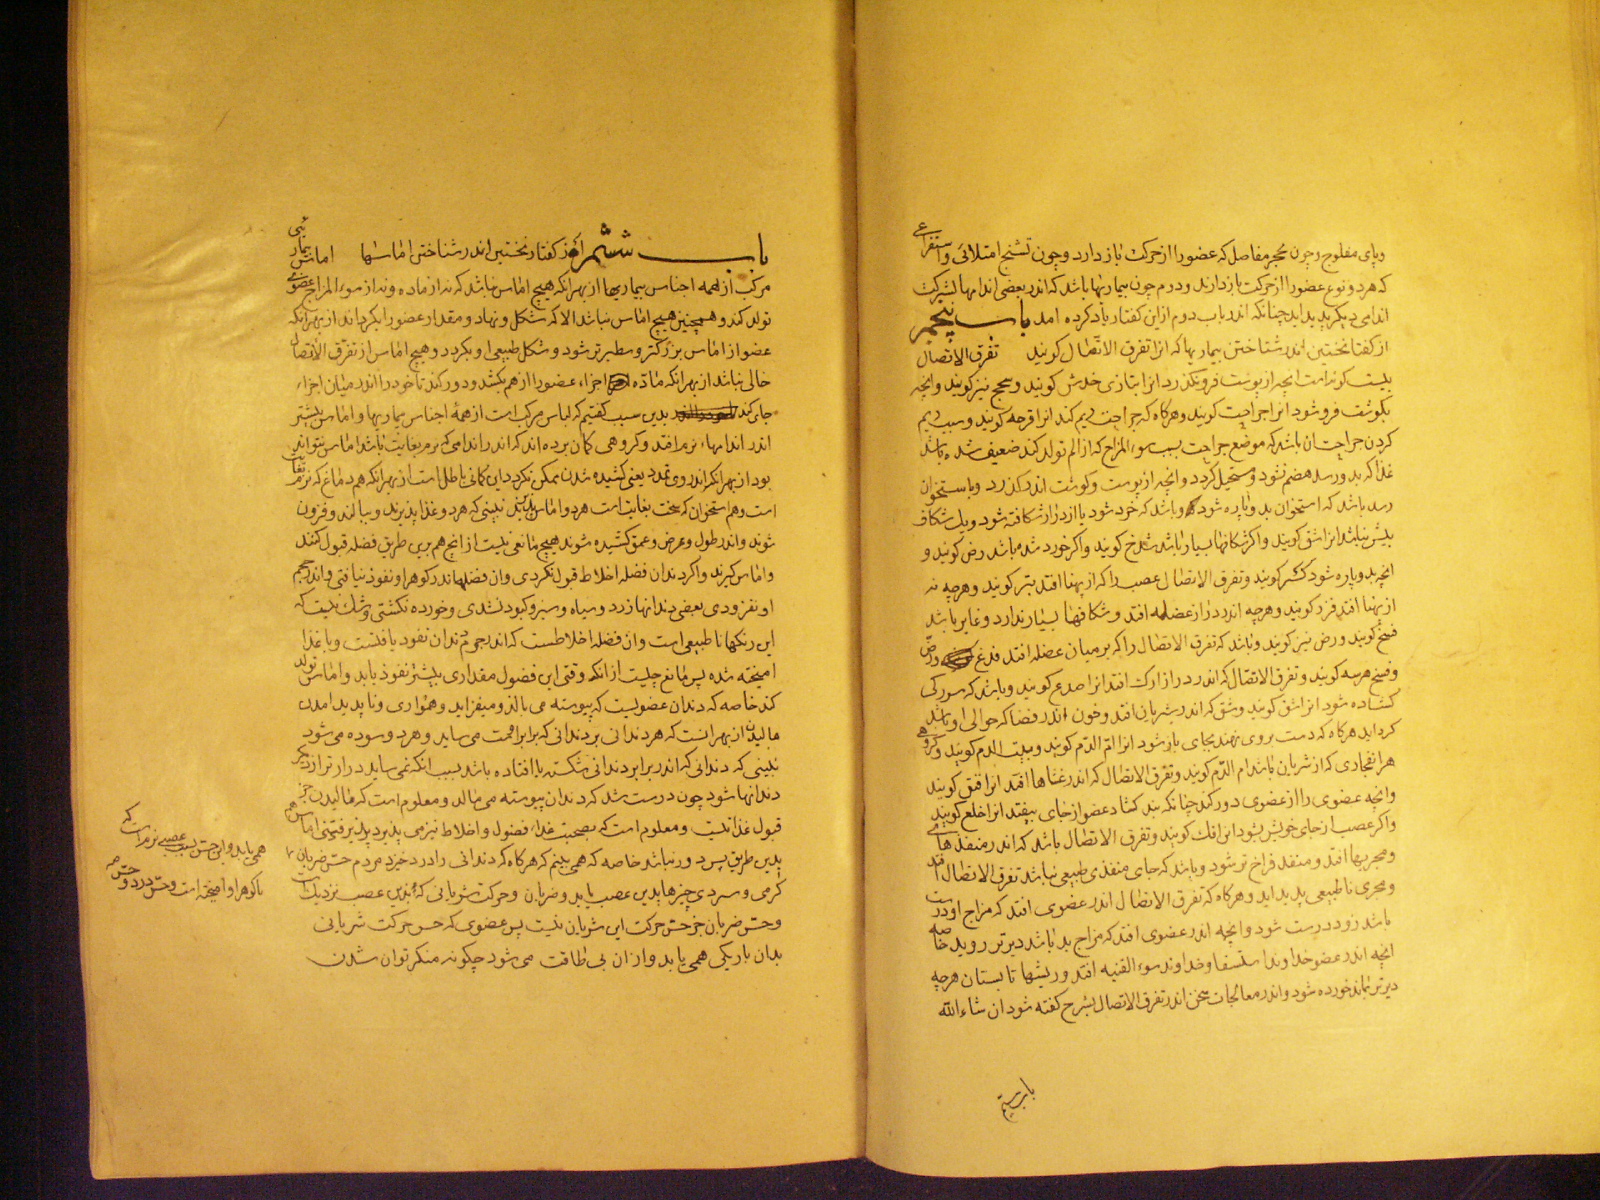 و پای مفلوج و چون محجر مفاصل که عضو را از حرکت باز دارد و چون تشنج امتلائی و استفراغی
که هر دو نوع عضو را از حرکت باز دارند و دوم چون بیماریها باشد که اندر بعضی اندامها بشرکت
اندامی دیگر پدید اید چنانکه اندر باب دوم از این کفتار یاد کرده امد باب پنجم
از کفتار نخستین اندر شناختن بیماریها که انرا تفرق الاتصال کویند تفرق الاتصال
بیست کونه است انچه از پوست فرو نکذرد انرا بتازی خدش کویند و سحج نیز کویند و انچه
بکوشت فرو شود انرا جراحت کویند و هرکاه که جراحت ریم کند انرا قرحه کویند و سبب ریم
کردن جراحت ان باشد که موضع جراحت بسبب سوء المزاج که از الم تولد کند ضعیف شده باشد
غذا که بدو رسد هضم نشود و مستحیل کردد و انچه از پوست و کوشت اندر کذرد و باستخوان
رسد باشد که استخوان بدو پاره شود و باشد که خرد شود یا از درازا شکافته شود و یک شکاف
بیش نباشد انرا شق کویند و اکر شکافها بسیار باشد شدخ کویند و اکر خورد شده باشد رض کویند و
انچه بدو پاره شود کسر کویند و تفرق الاتصال عصب را که از پهنا افتد بتر کویند و هرچه نه
از پهنا افتد فزر کویند و هرچه اندر دراز عضله افتد و شکافها بسیار ندارد و غایر باشد
فسخ کویند و رض نیز کویند و باشد که تفرق الاتصال را که بر میان عضله افتد فدغ کویند و رض
و فسخ هر سه کویند و تفرق الاتصال که اندر دراز رک افتد انرا صدع کویند و باشد که سر رکی
کشاده شود انرا بثق کویند و شق که اندر شریان افتد و خون اندر فضا که حوالی او باشد
کرد اید هرکاه که دست بروی نهند بجای باز شود انرا ام الدم کویند و بیت الدم کویند و کروهی
هر انفجاری که از شریان باشد ام الدم کویند و تفرق الاتصال که اندر غشاها افتد انرا فتق کویند
و انچه عضوی را از عضوی دور کند چنانکه بند کشاد عضو از جای بیفتد انرا خلع کویند
و اکر عصب از جای خویش بشود انرا فک کویند و تفرق الاتصال باشد که اندر منفذهای
و مجریها افتد و منفذ فراخ تر شود و باشد که جای منفذی طبیعی نباشد تفرق الاتصال افتد
و مجری ناطبیعی پدید اید و هرکاه که تفرق الاتصال اندر عضوی افتد که مزاج او درست
باشد زود درست شود و انچه اندر عضوی افتد که مزاج بد باشد دیرتر روید خاصه
انچه اندر عضو خداوند استسقا و خداوند سوء القنیه افتد و ریشها تابستان هرچه
دیرتر بماند خورده شود و اندر معالجات سخن اندر تفرق الاتصال بشرح کفته شود ان شاء الله
باب ششم از کفتار نخستین اندر شناختن اماسها اماس بیماریئی
مرکب از همه اجناس بیماریها از بهر انکه هیچ اماس نباشد که نه از ماده و نه از سوء المزاج عضوی
تولد کند و همچنین هیچ اماس نباشد الا که شکل و نهاد و مقدار عضو را بکرداند از بهر انکه
عضو از اماس بزرکتر و سطبرتر شود و شکل طبیعی او بکردد و هیچ اماس از تفرق الاتصال
خالی نباشد از بهر انکه ماده اجزاء عضو را از هم بکشد و دور کند تا خود را اندر میان اجزاء
جای کند بدین سبب کفتیم که اماس مرکب است از همه اجناس بیماریها و اماس بیشتر
اندر اندامهاء نرم افتد و کروهی کمان برده اند که اندر اندامی که نرم بغایت باشد اماس نتواند
بود از بهر انکه اندر وی تمدد یعنی کشیده شدن ممکن نکردد این کمانی باطل است از بهر انکه هم دماغ که نرم بغایت
است و هم استخوان که سخت بغایت است هر دو اماس پذیرند نبینی که هر دو غذا پذیرند و ببالند و فزون
شوند و اندر طول و عرض و عمق کشیده شوند هیچ مانعی نیست از انچ هم برین طریق فضله قبول کنند
و اماس کیرند و اکر دندان فضله اخلاط قبول نکردی و ان فضلها اندر کوهر او نفوذ نیافتی و اندر حجم
او نفزودی بعضی دندانها زرد و سیاه و سبز و کبود نشدی و خورده نکشتی و شک نیست که
این رنکها ناطبیعی است و ان فضله اخلاطست که اندر جرم دندان نفوذ یافتست و با غذا
امیخته شده پس مانع چیست از انکه وقتی این فضول مقداری بیشتر نفوذ یابد و اماس تولد
کند خاصه که دندان عضویست که پیوسته می بالد و میفزاید و همواری و ناپدید امدن
مالیدن از بهر انست که هر دندانی بر دندانی که برابر اوست می ساید و هر دو سوده می شود
نبینی که دندانی که اندر برابر دندانی شکسته یا افتاده باشد بسبب انکه نمی ساید درازتر از دیکر
دندانها شود چون درست شد که دندان پیوسته می بالد و معلوم است که بالیدن جز
قبول غذا نیست و معلوم است که بصحبت غذاء فضول و اخلاط نیز می پذیرد پذیرفتنی اماس هم
بدین طریق پس دور نباشد خاصه که همی بینم که هرکاه که دندانی را درد خیزد مردم حس ضربان
کرمی و سردی چیزها بدین عصب یابد و ضربان و حرکت شریانی که بدین عصب نزدیک است
و حس ضربان جز حس حرکت این شریان نیست پس عضوی که حس حرکت شریانی
بدان باریکی همی یابد و از ان بی طاقت می شود چکونه منکر توان شدن
همی یابد و این حس بسبب عصبی نرم است که
با کوهر او امیخته است و حس درد و حس
باب ششم